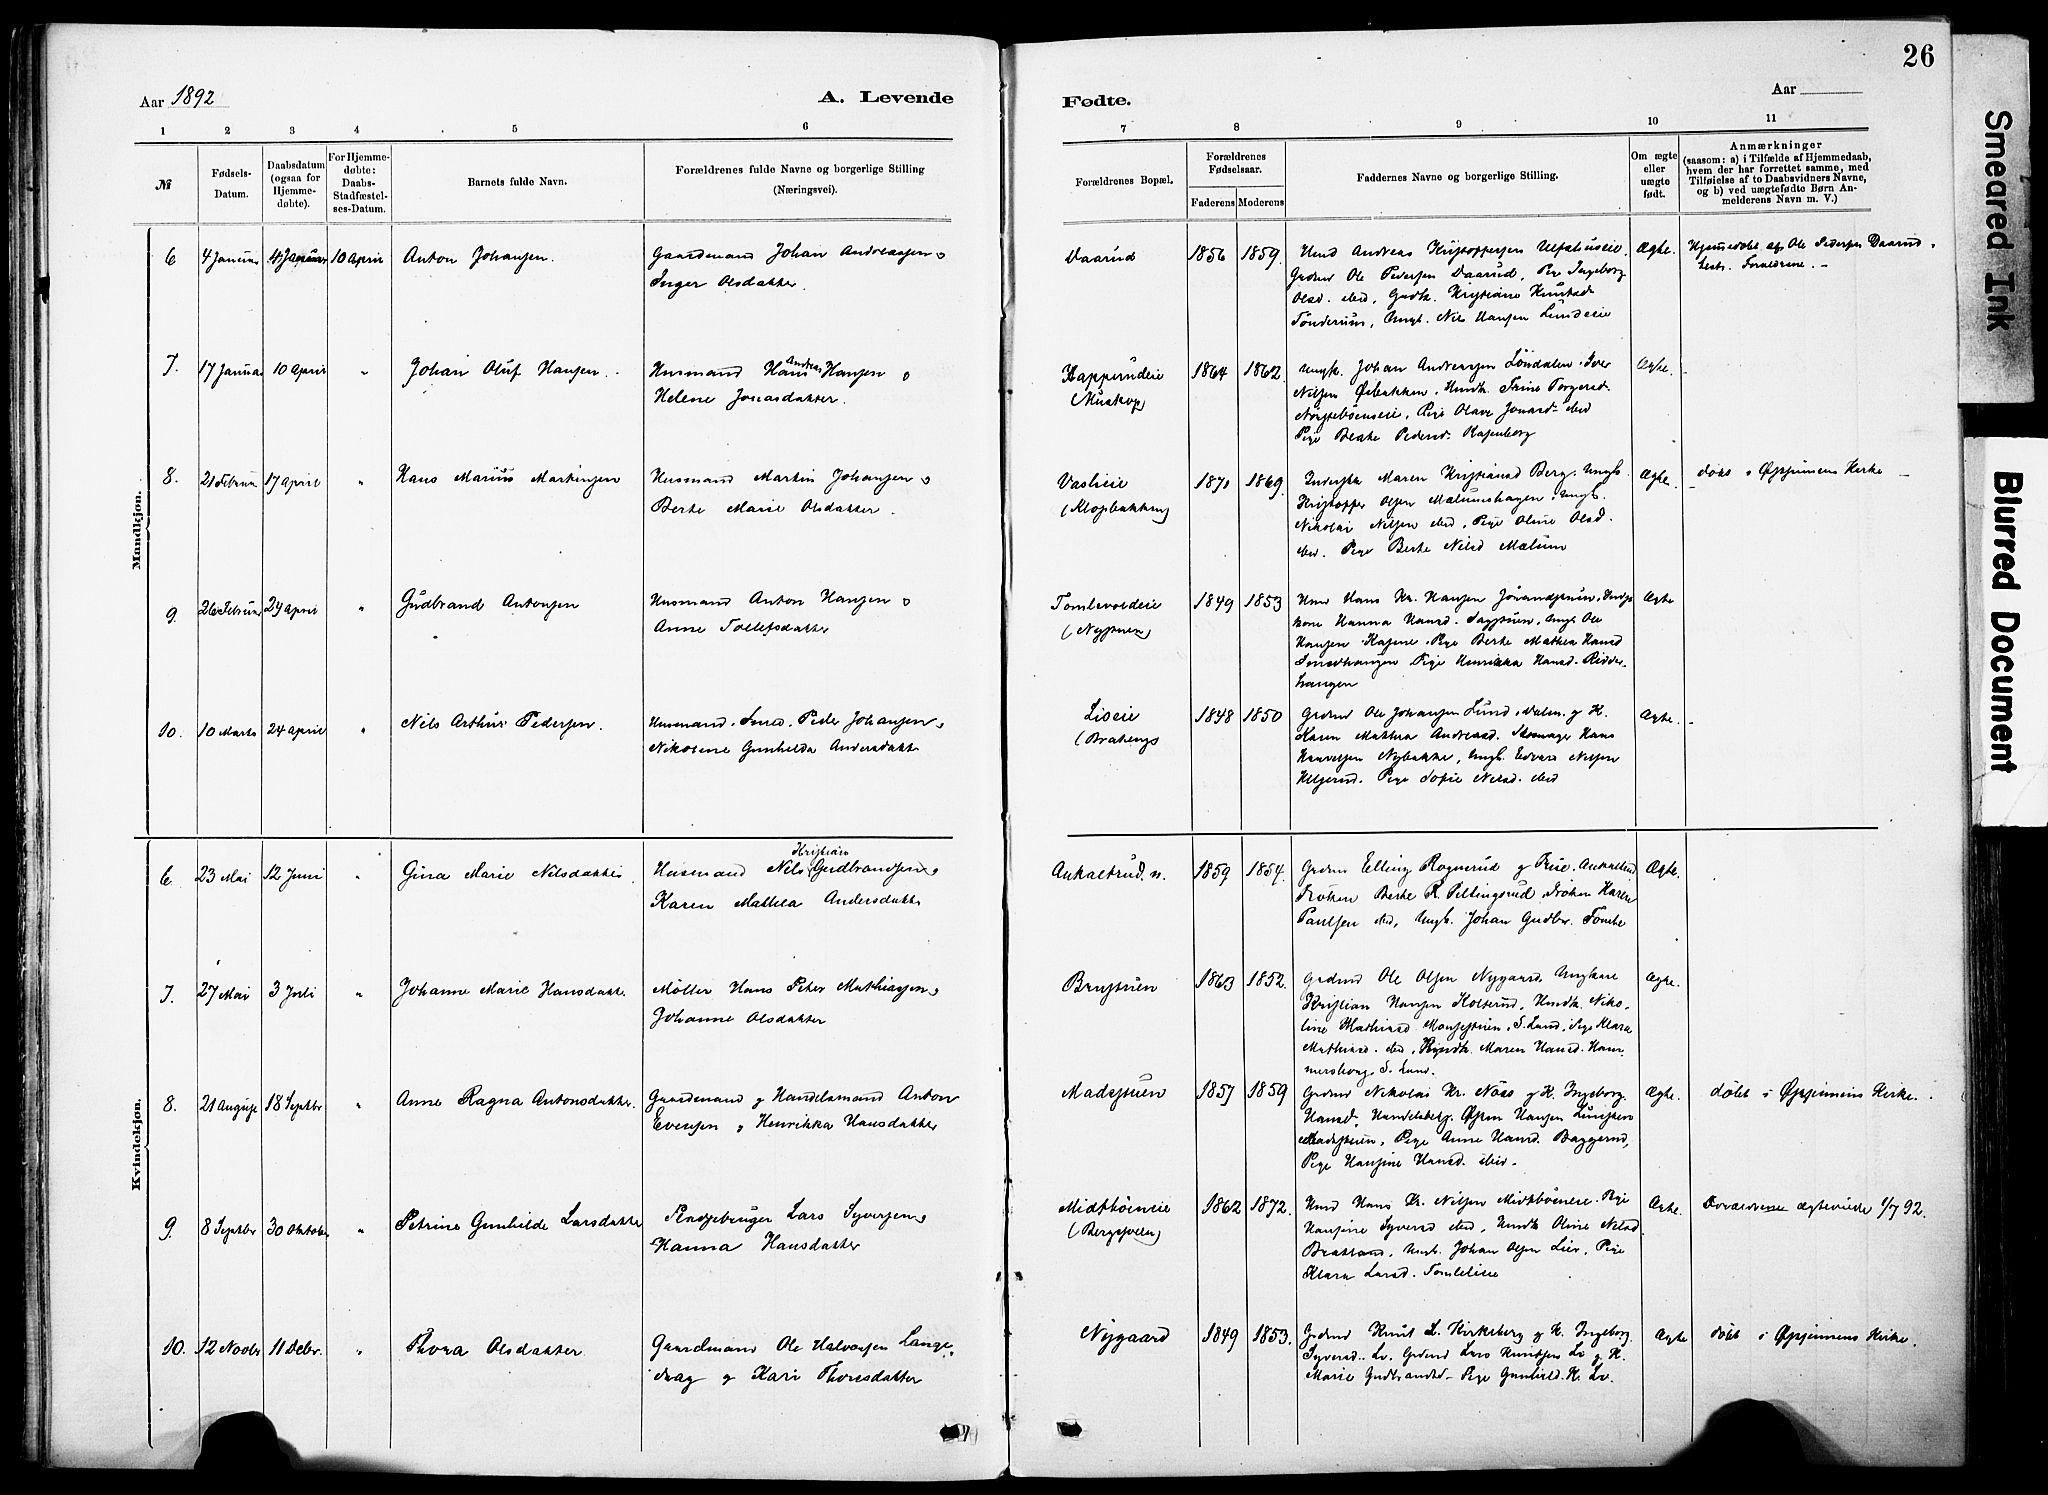 26
Aar 1892
A. Levende
Fødte.
Aar
1 2 3 4 5 6 7 8 9 10 11
№
Fødsels-
Datum.
Daabsdatum
(ogsaa for
Hjemme-
døbte).
For Hjemme-
døbte:
Daabs-
Stadfæstel-
ses-Datum.
Barnets fulde Navn.
Forældrenes fulde Navne og borgerlige Stilling
(Næringsvei).
Forældrenes Bopæl.
Forældrenes
Fødselsaar.
Faderens Moderens
Faddernes Navne og borgerlige Stilling.
Om ægte
eller
uægte
født.
Anmærkninger
(saasom: a) i Tilfælde af Hjemmedaab,
hvem der har forrettet samme, med
Tilføielse af to Daabsvidners Navne,
og b) ved uægtefødte Børn An-
melderens Navn m. V.)
Mandkjøn.
6 4 Januar 4 Januar 10 April Anton Johansen.
Gaardmand Johan Andreassen o
Inger Olsdatter.
Daarud 1856 1859.
Hmd Andreas Kristoffersen Ulfshuseie,
Grdmd Ole Pedersen Daarud, Pige Ingeborg
Olsd. ibid, Gmdk. Kristiane Knutsd
Tønderum, Ungk. Nils Hansen Lundeeie
Ægte.
Hjemmedøbt af Ole Pedersen Daarud.
Test. Forældrene. –
7. 17 Januar 10 April „ Johan Oluf Hansen.
Husmand Hans Andreas Hansen o
Helene Jonasdatter.
Kapperudeie
(Muskop)
1864 1862.
Ungk. Johan Andreassen Løvdalen. Iver
Nilsen Øibakken, Hmdk. Trine Torgersd.
Nørstebøenseie, Pige Olave Jonasd. ibid
Pige Beate Pedersd. Rosenborg
Ægte.
8. 21 Februar 17 April „ Hans Marius Martinsen
Husmand Martin Johansen o
Berte Marie Olsdatter.
Vaslieie
(Klopbakken)
1870 1869.
Inderste Maren Kristiansd Berg. Ungk.
Kristoffer Olsen Mælumshagen. Ungk.
Nikolai Nilsen ibid, Pige Oline Olsd.
ibid. Pige Berte Nilsd Mælum
Ægte.
døbt i Øistunens Kirke –
9. 26 Februar 24 April „ Gudbrand Antonsen
Husmand Anton Hansen o
Anne Tollefsdatter
Tomlevoldeie
(Nystuen)
1849 1853
Hmd Hans Kr. Hansen
kone Hanna Hansd.
Ungk Ole
Hansen
Pige Berte Mathea Hansd
Pige Henrikka Hansd. Ridder-
hangen
Ægte
10. 10 Marts 24 April „ Nils Arthur Pedersen.
Husmand. Smed. Peder Johansen o
Nikoline Gunhilda Andersdatt
Lieie
(Bratengs
1848 1850
Grdmd Ole Johansen Lund, Dalen. og K.
Karen Mathea Andreasd. Skomager Hans
Haavelsen Nybakke, Ungk. Edvard Nilsen
Helgerud. Pige Sofie Nilsd. ibid
Ægte.
Kvindekjøn.
6. 23 Mai 12 Juni „ Gina Marie Nilsdatter.
Husmand Nils Kristian Gudbrandsen o
Karen Mathea Andersdatt
Aukeltrud. n. 1859 1854.
Grdmd Elling Rognerud og Frue.
Frøken Berte R. Pettingsrud. Frøken Karen
Paulsen ibid, Ungk. Johan Gudbr. Tomte
Ægte.
7. 27 Mai 3 Juli „ Johanne Marie Hansdatt.
Møller Hans Peter Mathiassen o
Johanne Olsdatter
Brustuen 1863 1852.
Grdmd Ole Olsen Nygaard, Ungkarl
Kristian Hansen Kolterud. Hmdk. Niko-
line Mathiasd. S. Land, Pige Klara
Mathiasd. ibid, Maren Hansd. Ham-
mersborg S. Land.
Ægte.
8. 21 August 18 Septbr „ Anne Ragna Antonsdatter.
Gaardmand og Handelsmand Anton
Evensen o Henrikka Hansdatter
Madsstuen 1857 1859
Grdmd Nikolai Kr. Nøss og K. Ingeborg.
Hansd. Handelsbetj. Hansen
Madsstuen, Pige Anne Hansd. Baggerud,
Pige Hansine Hansd. ibid.
Ægte.
døbt i Øistunens Kirke.
9. 8 Septbr 30 Oktober „ Petrine Gunhilde Larsdatter
Lars Syversen o
Hanna Hansdatter
Midtbøeneie
(Bergsveen)
1862 1872.
Hmd Hans Kr. Nilsen Midtbøeneie. Pige
Hansine Syversd ibid, Hmdk Oline Nilsd
Bratland, Ungk. Johan Olsen Lier, Pige
Klara Larsd. Tomleleie
Ægte.
Forældrene ægteviede 1/7 92.
10. 12 Novbr 11 Debr. „ Thora Olsdatter
Gaardmand Ole Halvorsen Lange-
drag og Kari Thoresdatter
Nygaard 1849 1853.
Grdmd Knut L. Kirkeberg og K. Ingeborg.
Syversd. Lv. Grdmd Lars Knutsen Lv og K.
Marie Gudbrandsd. Pige Gunhild. K. Lv.
Ægte
døbt i Øistunens Kirke.
Smeared Ink
Blurred Document